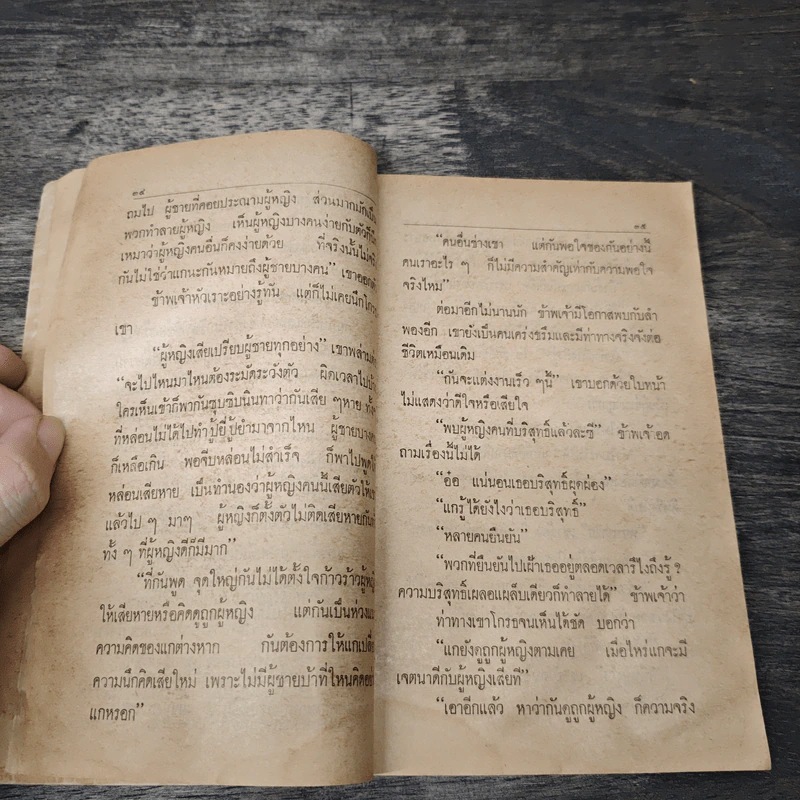 ๓๔
ถมไป ผู้ชายที่คอยประณามผู้หญิง ส่วนมากมักเป็น
พวกทำลายผู้หญิง เห็นผู้หญิงบางคนง่ายกับตัวก็
เหมาว่าผู้หญิงคนอื่นก็คงง่ายด้วย ที่จริงนั้นไม่จริง
กันไม่ใช่ว่าแกนะกันหมายถึงผู้ชายบางคน” เขาออกตัว
ข้าพเจ้าหัวเราะอย่างรู้ทัน แต่ก็ไม่เคยนึกโกรธ
เขา
“ผู้หญิงเสียเปรียบผู้ชายทุกอย่าง” เขาพล่าม
“จะไปไหนมาไหนต้องระมัดระวังตัว ผิดเวลาไป
ใครเห็นเข้าก็พากันซุบซิบนินทาว่ากันเสีย ๆหาย ทั้ง
ที่หล่อนไม่ได้ไปทำปู้ยี่ปู้ยำมาจากไหน ผู้ชายบางคน
ก็เหลือเกิน พอจีบหล่อนไม่สำเร็จ ก็พาไปพูดให้
หล่อนเสียหาย เป็นทำนองว่าผู้หญิงคนนี้เสียตัวให้
แล้วไป ๆ มาๆ ผู้หญิงก็ตั้งตัวไม่ติดเสียหายกัน
ทั้ง ๆ ที่ผู้หญิงดีก็มีมาก”
“ที่กันพูด จุดใหญ่กันไม่ได้ตั้งใจก้าวร้าวผู้หญิง
ให้เสียหายหรือคิดดูถูกผู้หญิง แต่กันเป็นห่วง
ความคิดของแกต่างหาก กันต้องการให้แกเปลี่ยน
ความนึกคิดเสียใหม่ เพราะไม่มีผู้ชายบ้าที่ไหนคิด
แกหรอก”
๓๕
“คนอื่นช่างเขา แต่กันพอใจของกันอย่างนี้
คนเราอะไร ๆ ก็ไม่มีความสำคัญเท่ากับความพอใจ
จริงไหม”
ต่อมาอีกไม่นานนัก ข้าพเจ้ามีโอกาสพบกับลำ
พองอีก เขายังเป็นคนเคร่งขรึมและมีท่าทางจริงจังต่อ
ชีวิตเหมือนเดิม
“กันจะแต่งงานเร็ว ๆนี้” เขาบอกด้วยใบหน้า
ไม่แสดงว่าดีใจหรือเสียใจ
“พบผู้หญิงคนที่บริสุทธิ์แล้วละซี” ข้าพเจ้าอด
ถามเรื่องนี้ไม่ได้
“อ๋อ แน่นอนเธอบริสุทธิ์ผุดผ่อง”
“แกรู้ได้ยังไงว่าเธอบริสุทธิ์”
“หลายคนยืนยัน”
“พวกที่ยืนยันไปเฝ้าเธออยู่ตลอดเวลารึไงถึงรู้ ?
ความบริสุทธิ์เผลอแผล็บเดียวก็ทำลายได้” ข้าพเจ้าว่า
ท่าทางเขาโกรธจนเห็นได้ชัด บอกว่า
“แกยังดูถูกผู้หญิงตามเคย เมื่อไหร่แกจะมี
เจตนาดีกับผู้หญิงเสียที”
“เอาอีกแล้ว หาว่ากันดูถูกผู้หญิง ก็ความจริง